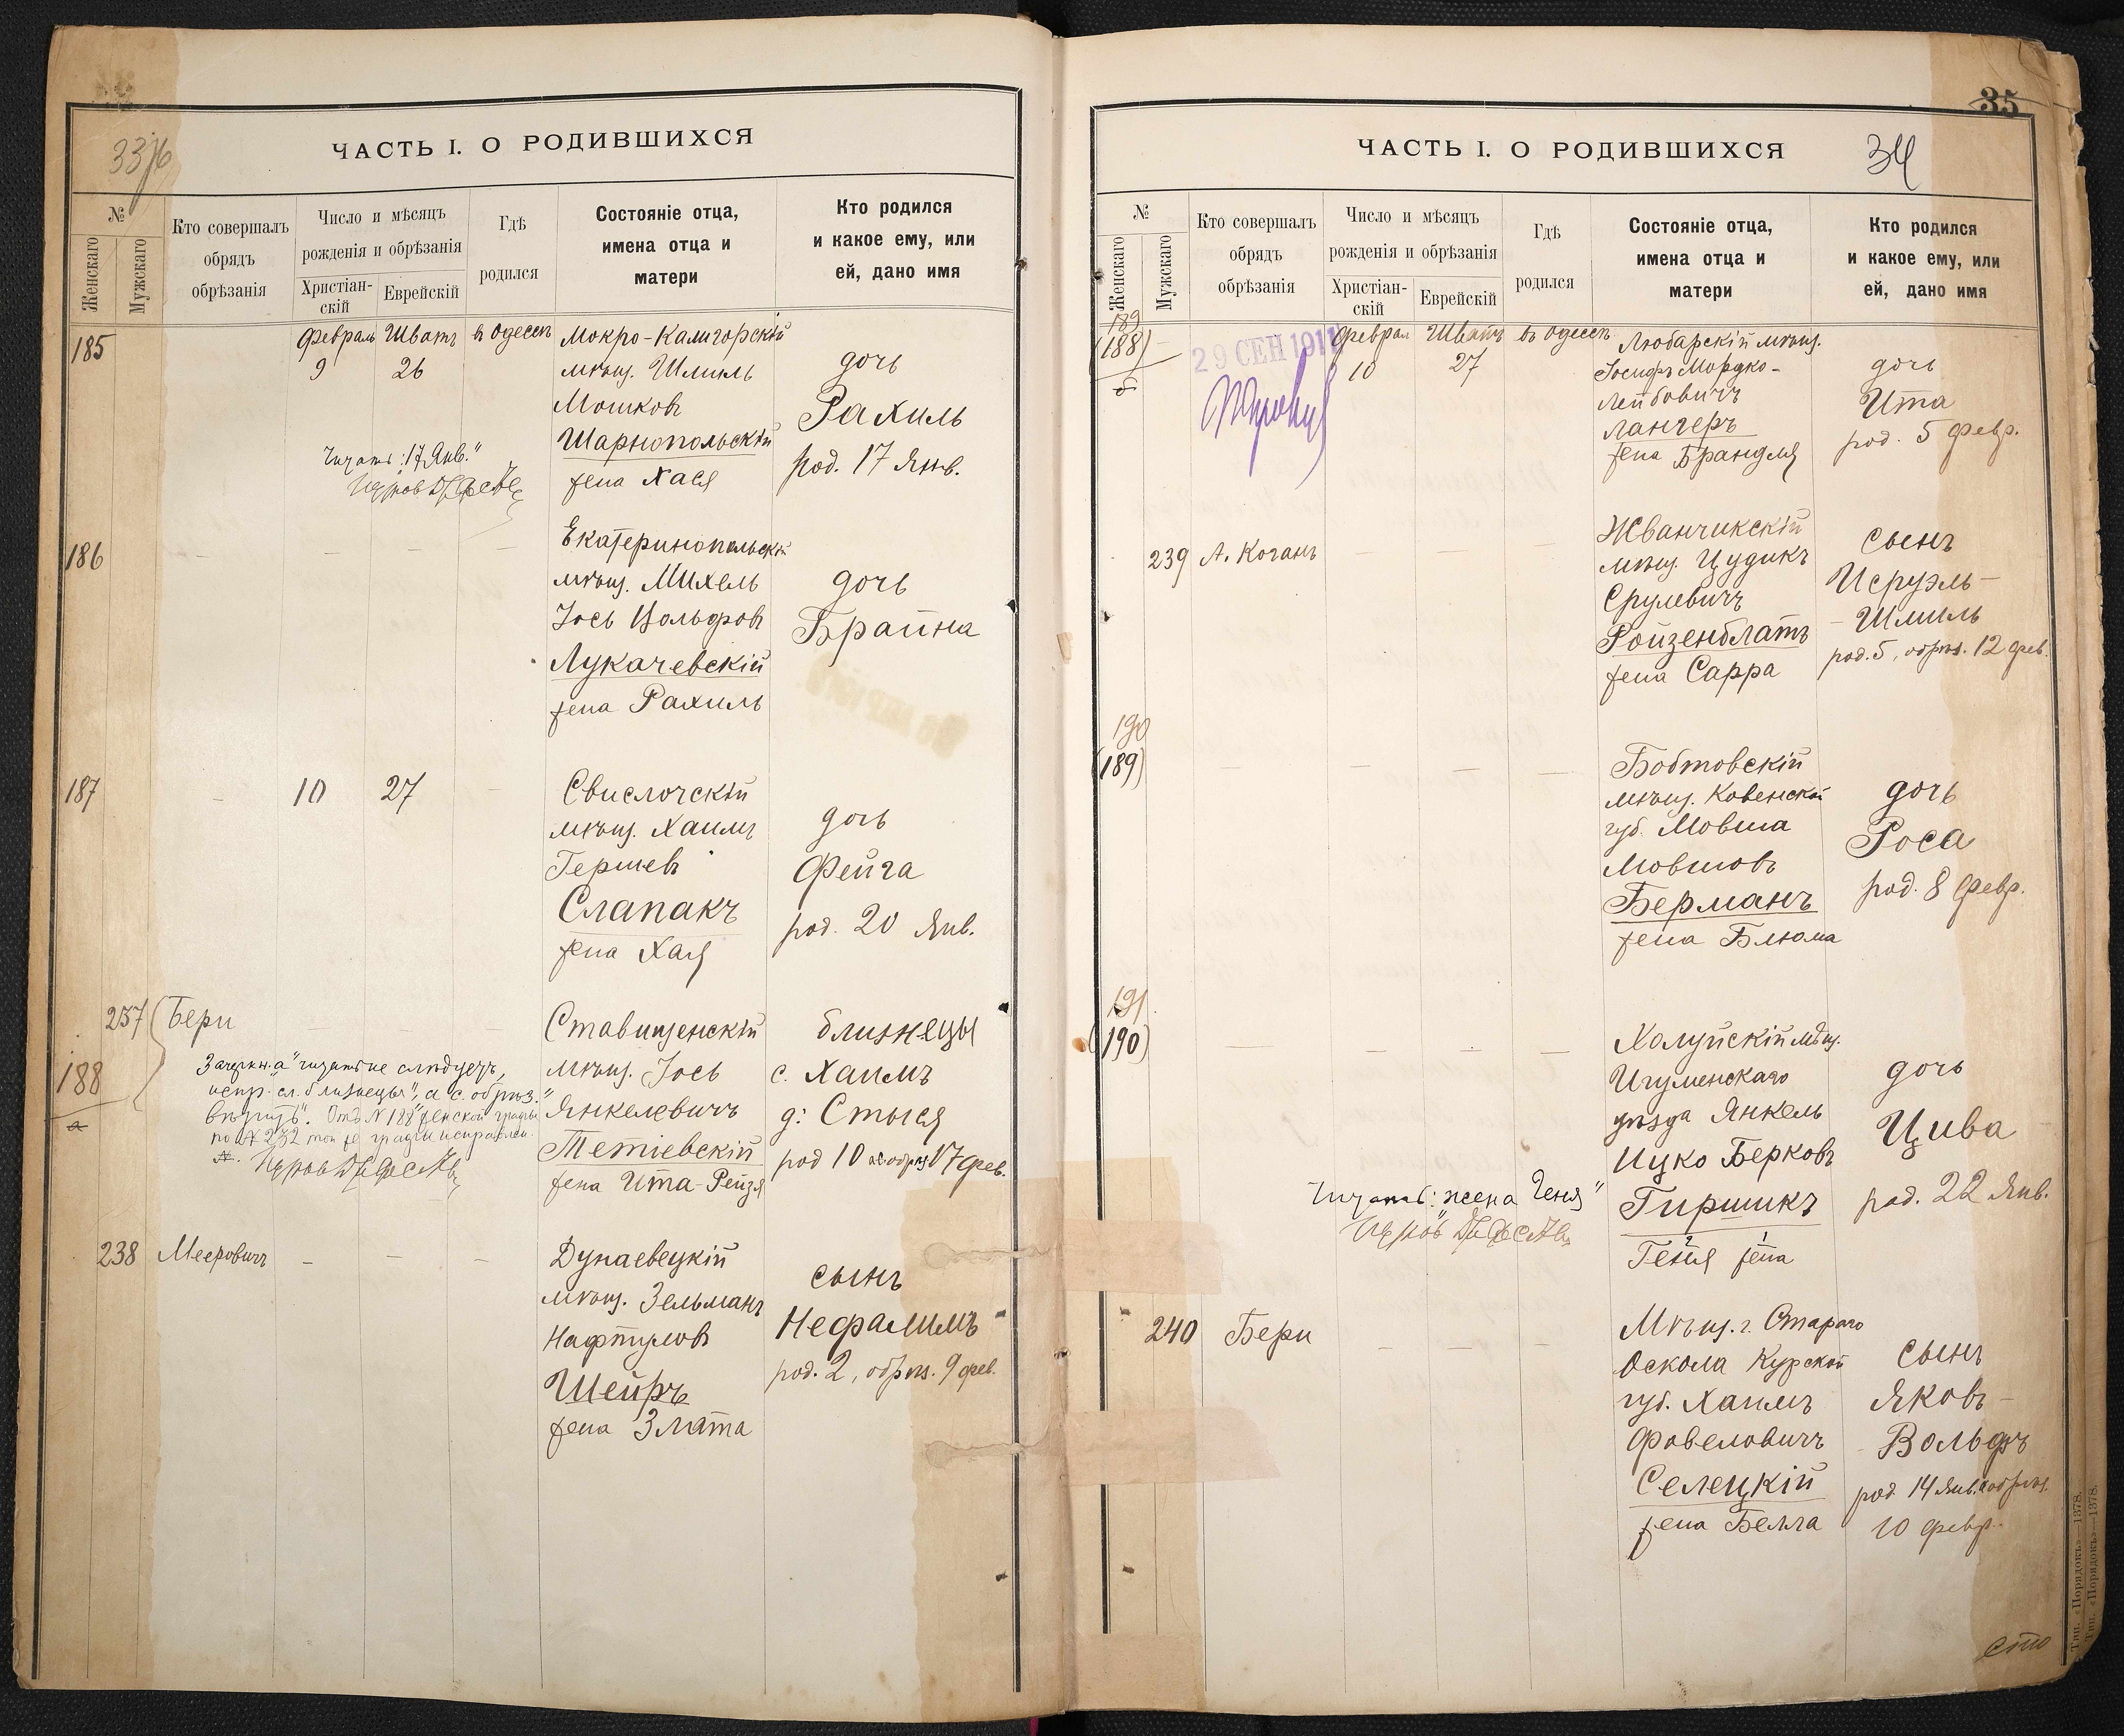 ЧАСТЬ I. О РОДИВШИХСЯ
№
Женскаго
Мужскаго
Кто совершалъ
обрядъ
обрѣзанія
Число и мѣсяцъ
рожденія и обрѣзанія
Христіан-
скій
Еврейскій
Гдѣ
родился
Состояніе отца,
имена отца и
матери
Кто родился
и какое ему, или
ей, дано имя
185
Февраль Шватъ въ Одессѣ
9 26
Мокро-Калигорскій
мѣщ. Шмиль
Мошковъ
Шарнопольскій
жена Хася
дочь
Рахиль
род. 17 Янв.
Читать: "17 Янв."
186
Екатеринопольскій
мѣщ. Михель
Іось Вольфовъ
Лукачевскій
жена Рахиль
дочь
Брайна
187
10 27
Свислочскій
мѣщ. Хаимъ
Гершевъ
Слапакъ
жена Хая
дочь
Фейга
род. 20 Янв.
237 Бери
188
а
Зачеркн. "а" читать не слѣдуетъ,
испр. сл. "близнецы", а "с. обрѣз."
вѣрить". Отъ №188 женской графы
Ставищенскій
мѣщ. Іось
Янкелевичъ
Тетіевскій
жена Ита-Рейзя
близнецы
с. Хаимъ
д: Стыся
род 10 обрѣз 17 фев.
238 Мееровичъ
Дунаевецкій
мѣщ. Зельманъ
Нафтуловъ
Шейръ
жена Злата
сынъ
Нефалимъ
род. 2, обрѣз. 9 фев.
35
ЧАСТЬ I. О РОДИВШИХСЯ
34
№
Женскаго
Мужскаго
Кто совершалъ
обрядъ
обрѣзанія
Число и мѣсяцъ
рожденія и обрѣзанія
Христіан-
скій
Еврейскій
Гдѣ
родился
Состояніе отца,
имена отца и
матери
Кто родился
и какое ему, или
ей, дано имя
189
(188)
б
29 СЕН 1911
Феврал Шватъ въ Одессѣ
10 27
Любарскій мѣщ.
Іосифъ Мордко-
Лейбовичъ
Лангеръ
жена Брандля
дочь
Ита
род. 5 Февр.
239 А. Коганъ
Жванчикскій
мѣщ. Цудикъ
Срулевичъ
Ройзенблатъ
жена Сарра
сынъ
Исруэль-
-Шмиль
род. 5, обрѣз. 12 фев.
190
(189)
Бобтовскій
мѣщ. Ковенской
губ. Мовша
Мовшовъ
Берманъ
жена Блюма
дочь
Роса
род. 8 Февр.
191
(190)
Холуйскій мѣщ.
Игуменскаго
уѣзда Янкель
Ицко Берковъ
Гиршикъ
Геня жена
дочь
Цива
род. 22 Янв.
Читать: "жена Геня"
240 Бери
Мѣщ. г. Стараго
Оскола Курской
губ. Хаимъ
Фавеловичъ
Селецкій
жена Белла
сынъ
Яковъ-
- Вольфъ
род. 14 Янв. а обрѣз.
10 февр.
сто
Тип. «Порядокъ» 1378.
Тип. «Порядокъ» 1378.